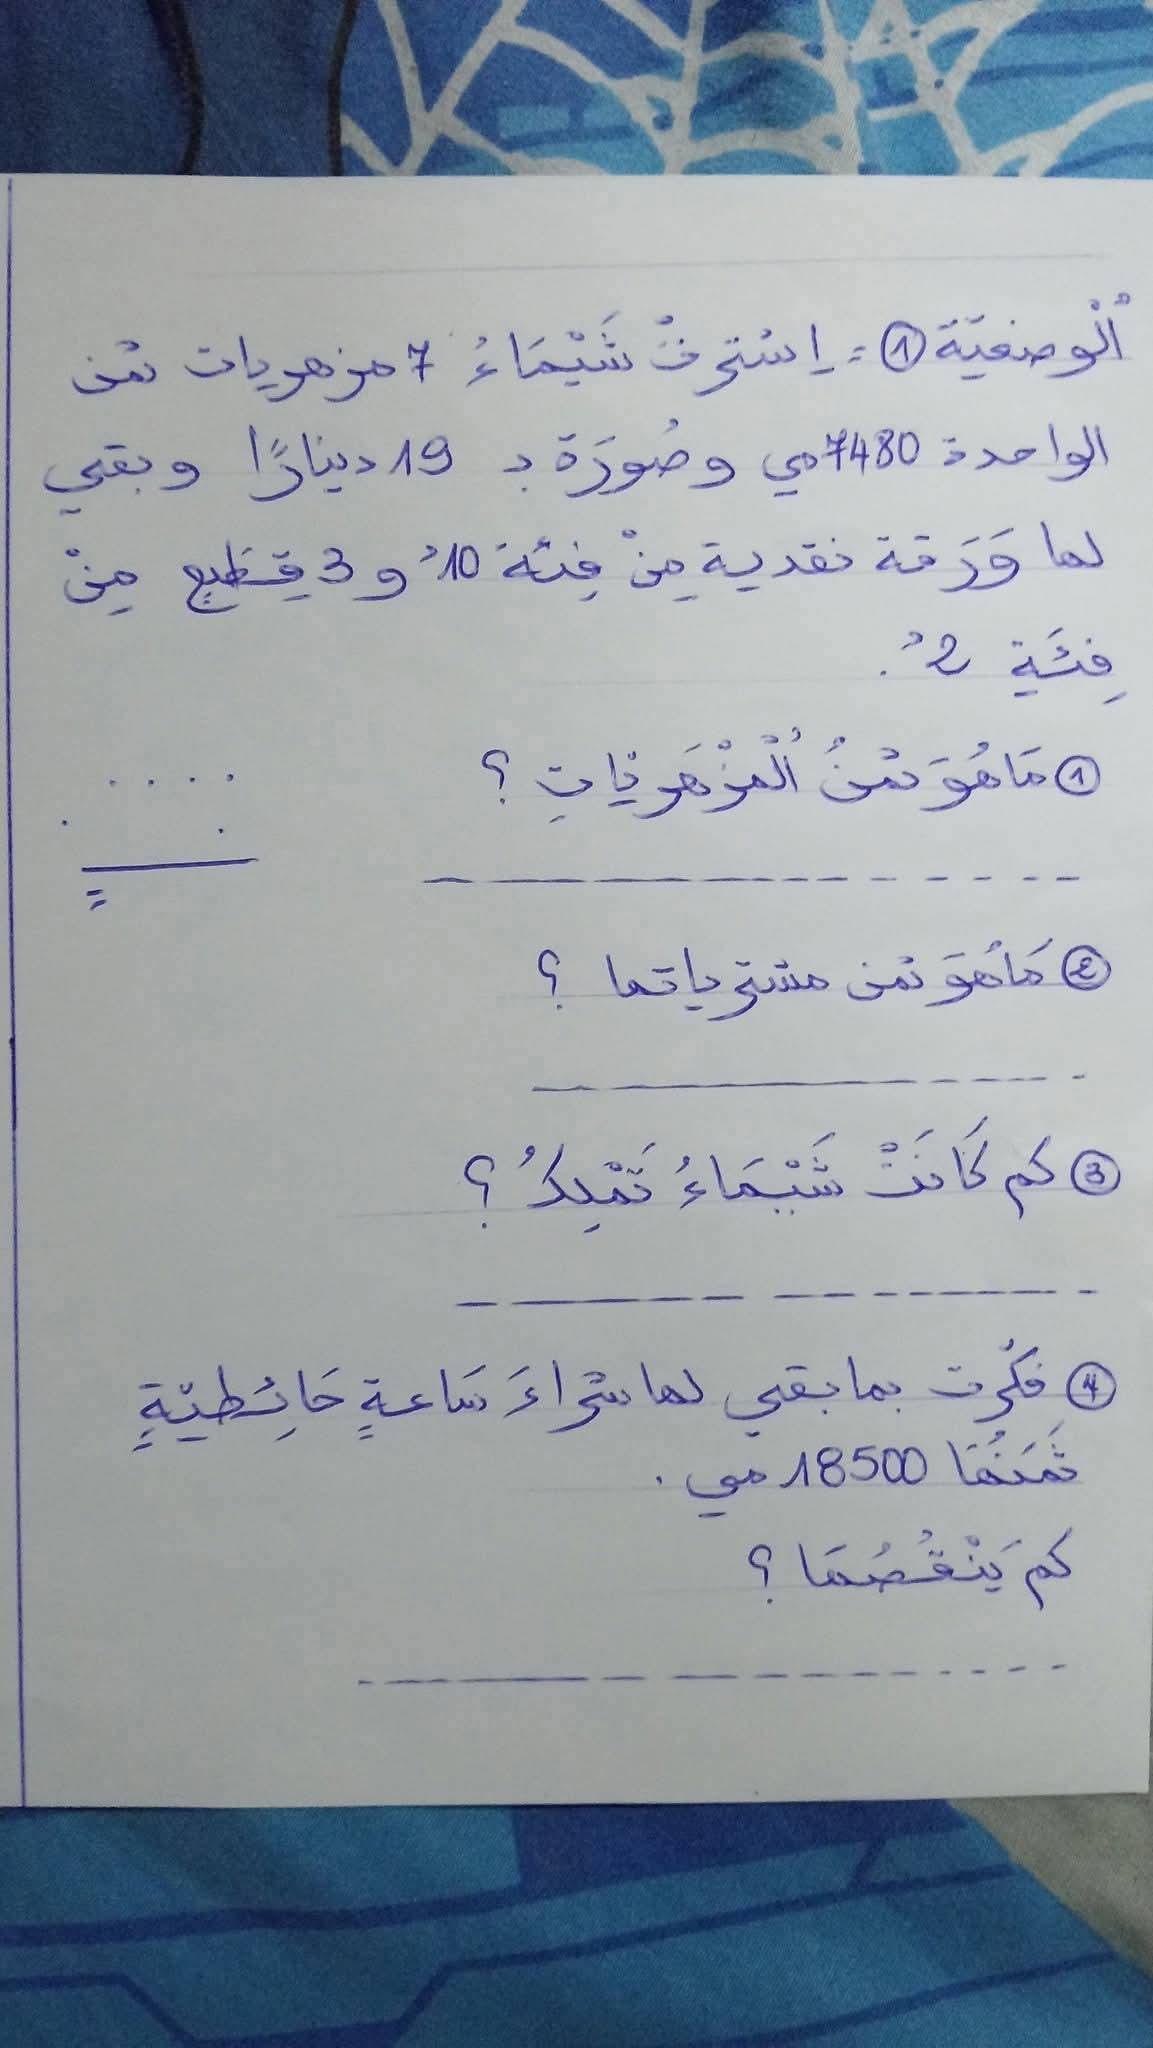 اَلْوضعيّة ① : اِشترتْ شَيْمَاءُ 7 مزهريات ثمن
الواحدة 7480 مي وصُورَة بـ 19 دينارًا وبقي
لها وَرَقة نقدية مِنْ فِئَة 10د و 3 قِطَعٍ مِنْ
فِئَةِ 2د .
① مَا هُوَ ثمنُ اُلْمَزْهَرِيَّاتِ ؟
② مَا هُوَ ثمن مشترياتها ؟
③ كم كَانَتْ شَيْمَاءُ تَمْلِكُ ؟
④ فكّرت بما بقي لها شراءَ سَاعةٍ حَائِطيّةٍ
ثَمَنُهَا 18500 مي .
كم يَنْقُصُهَا ؟